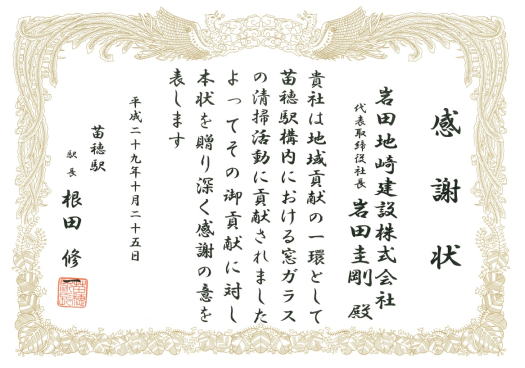 感謝状
岩田地崎建設株式会社
代表取締役社長 岩田圭剛 殿
貴社は地域貢献の一環として
苗穂駅構内における窓ガラス
の清掃活動に貢献されました
よってその御貢献に対し
本状を贈り深く感謝の意を
表します
平成二十九年十月二十五日
苗穂駅
駅長 根田 修一